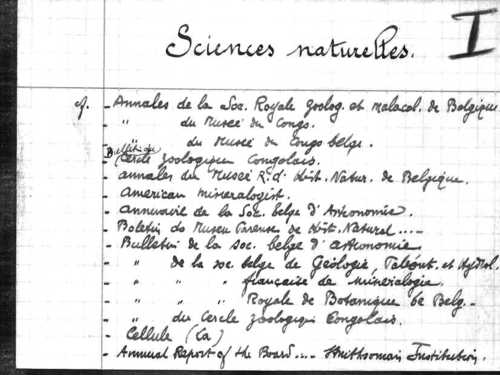 I
Sciences naturelles.
cf. - Annales de la Soc. Royale Zoolog. et Malacol. de Belgique.
- " du Musée du Congo.
- " du Musée du Congo belge.
- Bulletin du Cercle Zoologique Congolais.
- Annales du Musée R. d'Hist. Natur. de Belgique.
- American Mineralogist.
- Annuaire de la Soc. belge d'Astronomie.
- Boletin do Museu Paraense de Hist. Natural ...-
- Bulletin de la Soc. belge d'Astronomie
- " de la Soc. belge de Géologie, Paléont. et Hydrol.
- " " " française de Minéralogie.
- " " " Royale de Botanique de Belg.
- " du Cercle Zoologique Congolais.
- Cellule (La)
- Annual Report of the Board ... Smithsonian Institution.